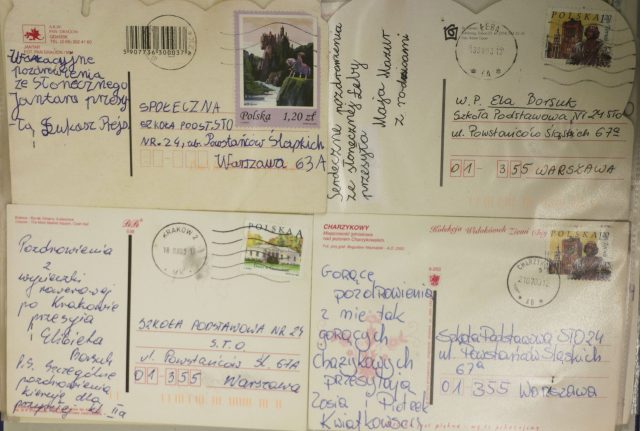 GDAŃSK
5 907736 300037
Wakacyjne
pozdrowienia
ze słonecznego
Jantaru przesy-
Łukasz
SPOŁECZNA
SZKOŁA PODST. STO
NR. 24, ul. Powstańców Śląskich
Warszawa 63A
Polska 1,20 zł
Serdeczne pozdrowienia
ze słonecznej Łeby
przesyła Maja Mazur
z rodzicami
ŁEBA
POLSKA
W.P. Ela Borsuk
Szkoła Podstawowa Nr 24 STO
ul. Powstańców Śląskich 67a
01-355 WARSZAWA
Pozdrowienia
z
wycieczki
rowerowej
po Krakowie
przesyła
Elżbieta
Borsuk
P.S. Szczególne
pozdrowienia
kieruję dla
przyszłej kl. IIa
KRAKÓW
POLSKA
SZKOŁA PODSTAWOWA NR 24
S.T.O
ul. Powstańców Śl. 67A
01-355
Warszawa
CHARZYKOWY
Kolekcja Widokówek Ziemi
Gorące
pozdrowienia
z nie tak
gorących
Chazykowych
przesyłają
Zosia Piotrek
Kwiatkowscy
POLSKA
Szkoła Podstawowa STO 24
ul. Powstańców Śląskich
67a
01-355 Warszawa